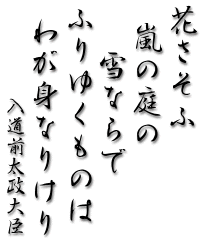 花さそふ
嵐の庭の
雪ならで
ふりゆくものは
わが身なりけり
入道前太政大臣